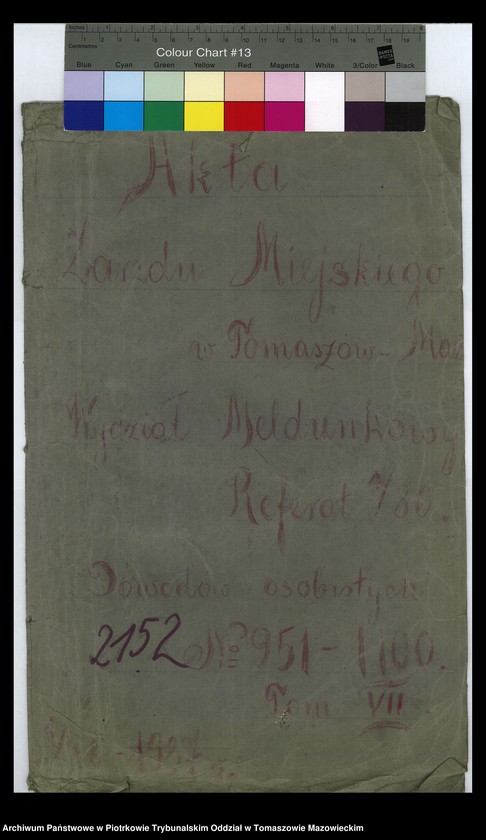 Inches 1 2 3 4 5 6 7 8
Centimetres 1 2 3 4 5 6 7 8 9 10 11 12 13 14 15 16 17 18 19
Colour Chart #13
Blue Cyan Green Yellow Red Magenta White 3/Color Black
Akta
Miejskiego
w Tomaszów- Maz
Wydział Meldunkowy
Referat
Dowodów osobistych
2152 № 951 - 1100.
Tom. VII
Archiwum Państwowe w Piotrkowie Trybunalskim Oddział w Tomaszowie Mazowieckim